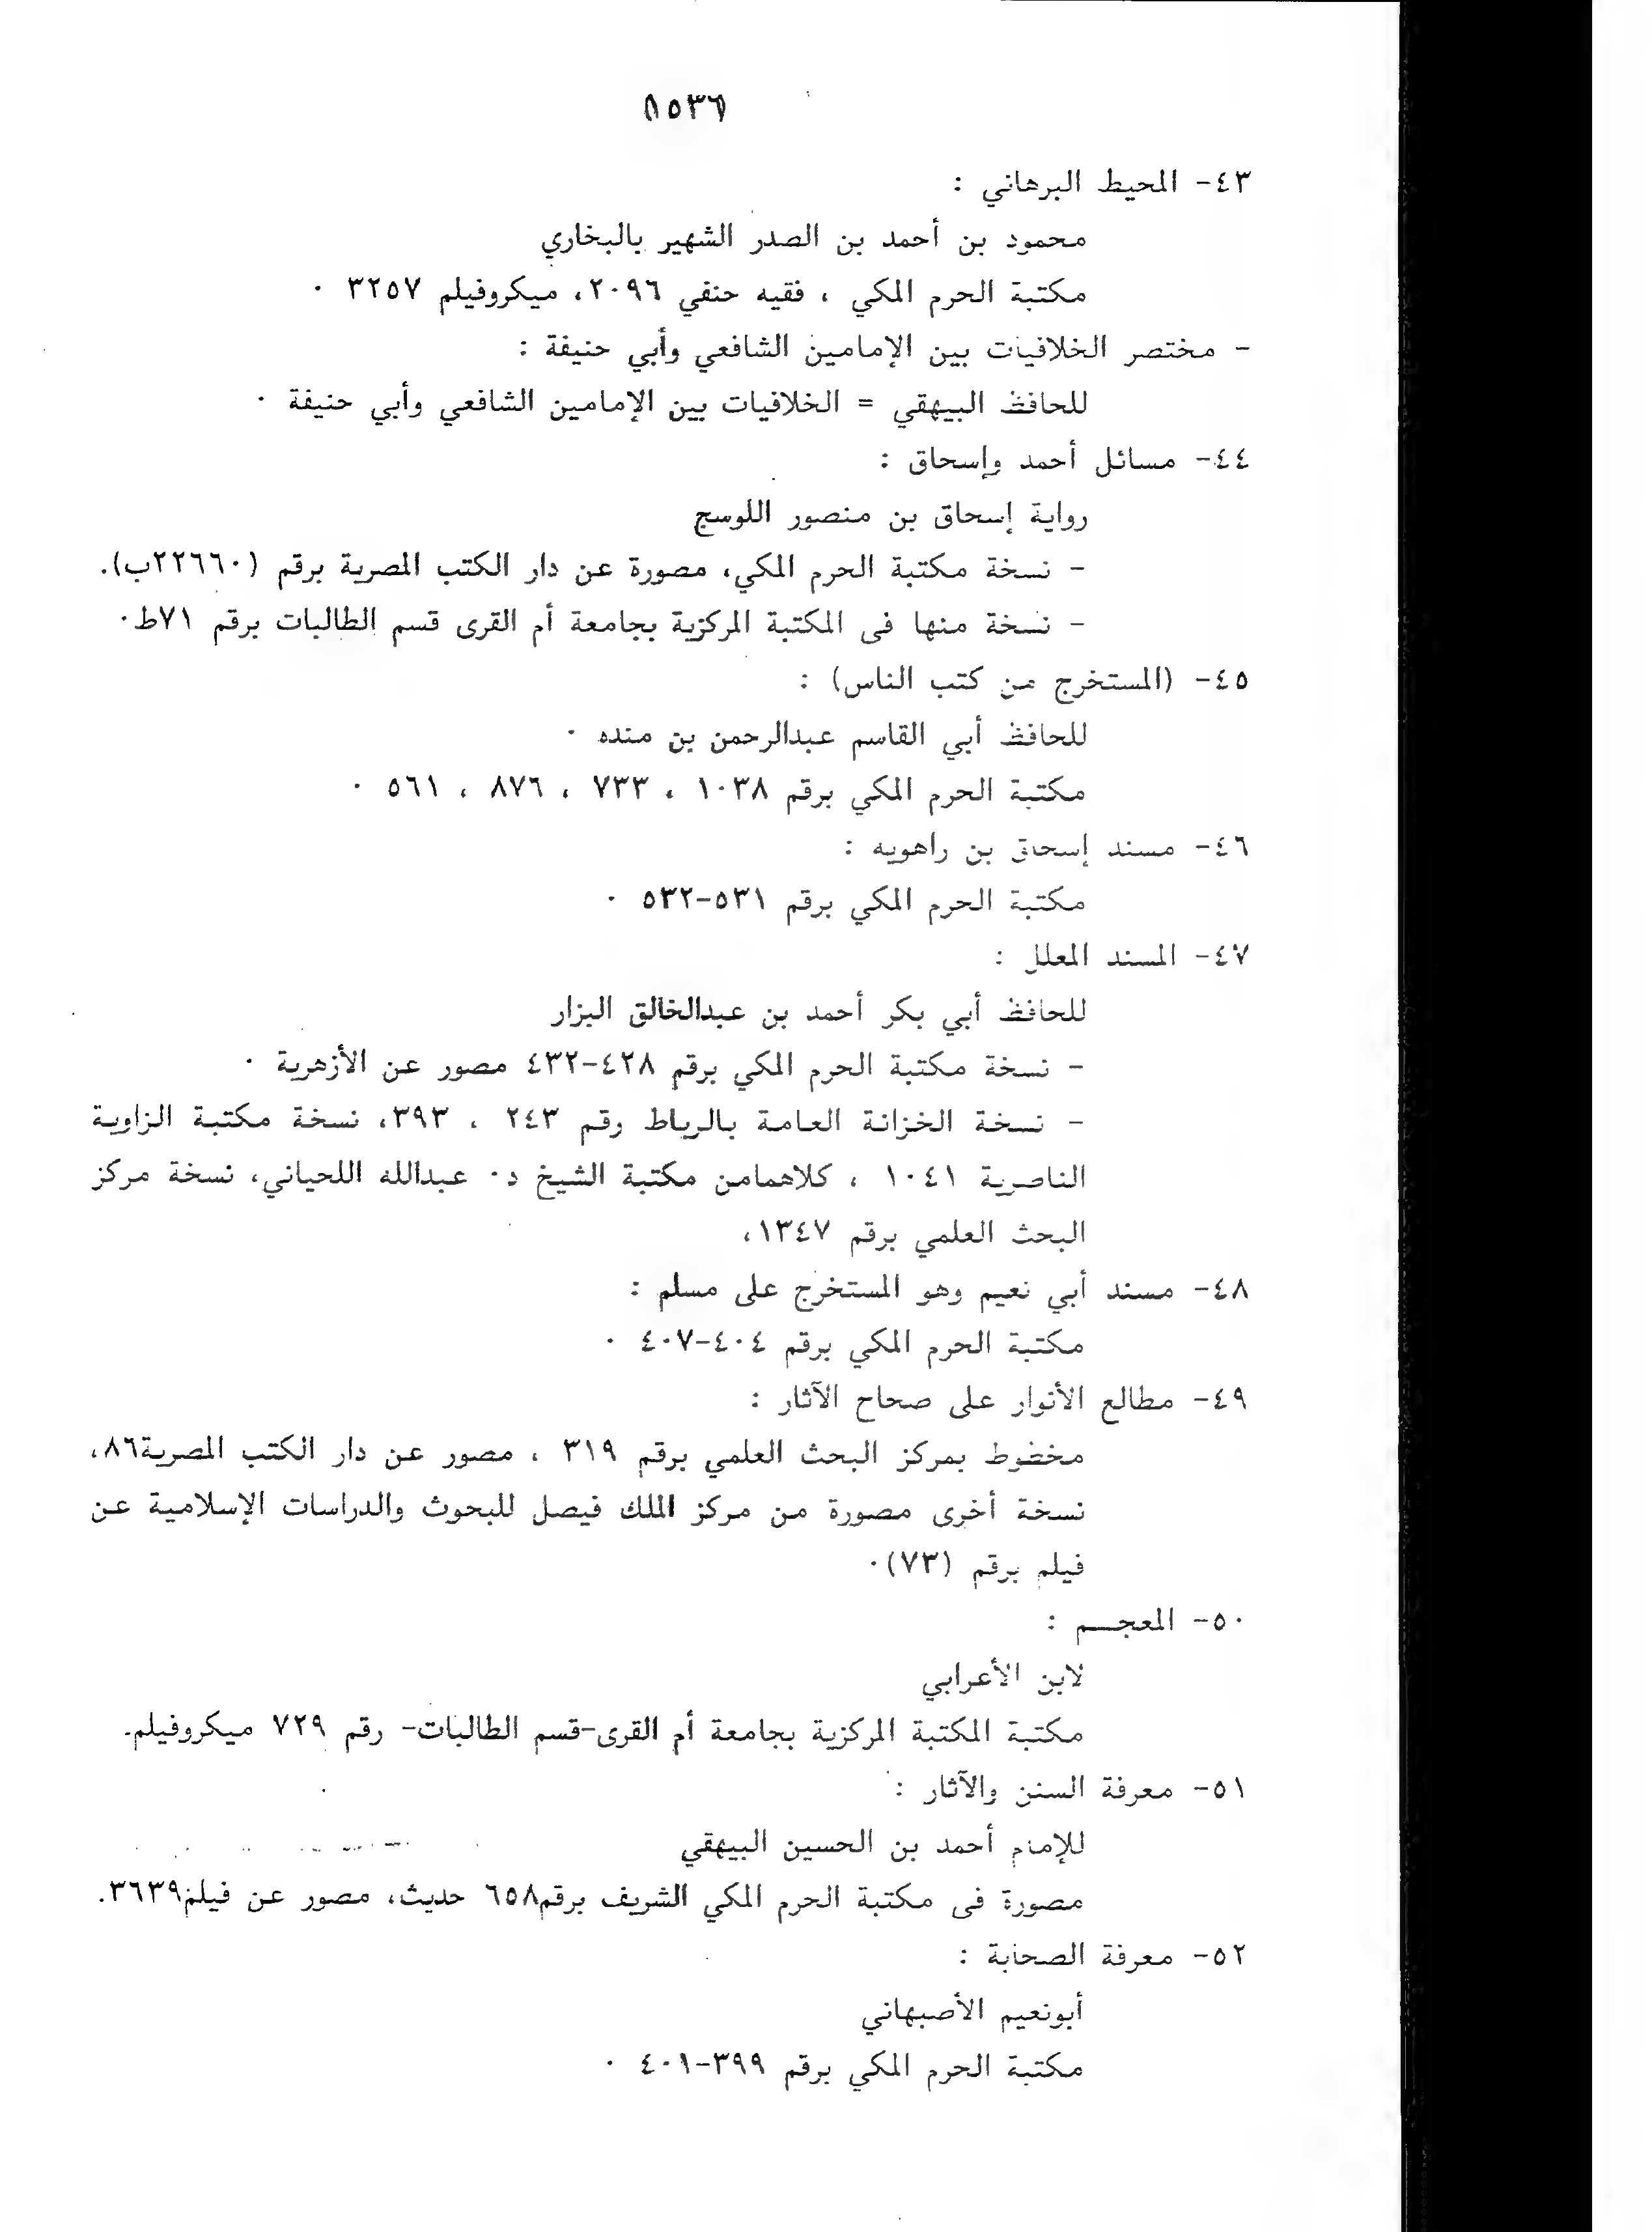 (١٥٣٦)
٤٣- المحيط البرهاني :
محمود بن أحمد بن الصدر الشهير بالبخاري
مكتبة الحرم المكي ، فقيه حنفي ٢٠٩٦، ميكروفيلم ٣٢٥٧ ٠
- مختصر الخلافيات بين الإمامين الشافعي وأبي حنيفة :
للحافظ البيهقي = الخلافيات بين الإمامين الشافعي وأبي حنيفة ٠
٤٤- مسائل أحمد وإسحاق :
رواية إسحاق بن منصور اللوسج
- نسخة مكتبة الحرم المكي، مصورة عن دار الكتب المصرية برقم (٢٢٦٦٠ب).
- نسخة منها فى المكتبة المركزية بجامعة أم القرى قسم الطالبات برقم ٧١ط٠
٤٥- (المستخرج من كتب الناس) :
للحافظ أبي القاسم عبدالرحمن بن منده ٠
مكتبة الحرم المكي برقم ١٠٣٨ ، ٧٣٣ ، ٨٧٦ ، ٥٦١ ٠
٤٦- مسند إسحاق بن راهويه :
مكتبة الحرم المكي برقم ٥٣١-٥٣٢ ٠
٤٧- المسند المعلل :
للحافظ أبي بكر أحمد بن عبدالخالق البزار
- نسخة مكتبة الحرم المكي برقم ٤٢٨-٤٣٢ مصور عن الأزهرية ٠
- نسخة الخزانة العامة بالرباط رقم ٢٤٣ ، ٣٩٣، نسخة مكتبة الزاوية
الناصرية ١٠٤١ ، كلاهمامن مكتبة الشيخ د٠ عبدالله اللحياني، نسخة مركز
البحث العلمي برقم ١٣٤٧،
٤٨- مسند أبي نعيم وهو المستخرج على مسلم :
مكتبة الحرم المكي برقم ٤٠٤-٤٠٧ ٠
٤٩- مطالع الأنوار على صحاح الآثار :
مخطوط بمركز البحث العلمي برقم ٣١٩ ، مصور عن دار الكتب المصرية٨٦،
نسخة أخرى مصورة من مركز الملك فيصل للبحوث والدراسات الإسلامية عن
فيلم برقم (٧٣)٠
٥٠- المعجـــم :
لابن الأعرابي
مكتبة المكتبة المركزية بجامعة أم القرى-قسم الطالبات- رقم ٧٢٩ ميكروفيلم.
٥١- معرفة السنن والآثار :
للإمام أحمد بن الحسين البيهقي
مصورة فى مكتبة الحرم المكي الشريف برقم٦٥٨ حديث، مصور عن فيلم٣٦٣٩.
٥٢- معرفة الصحابة :
أبونعيم الأصبهاني
مكتبة الحرم المكي برقم ٣٩٩-٤٠١ ٠